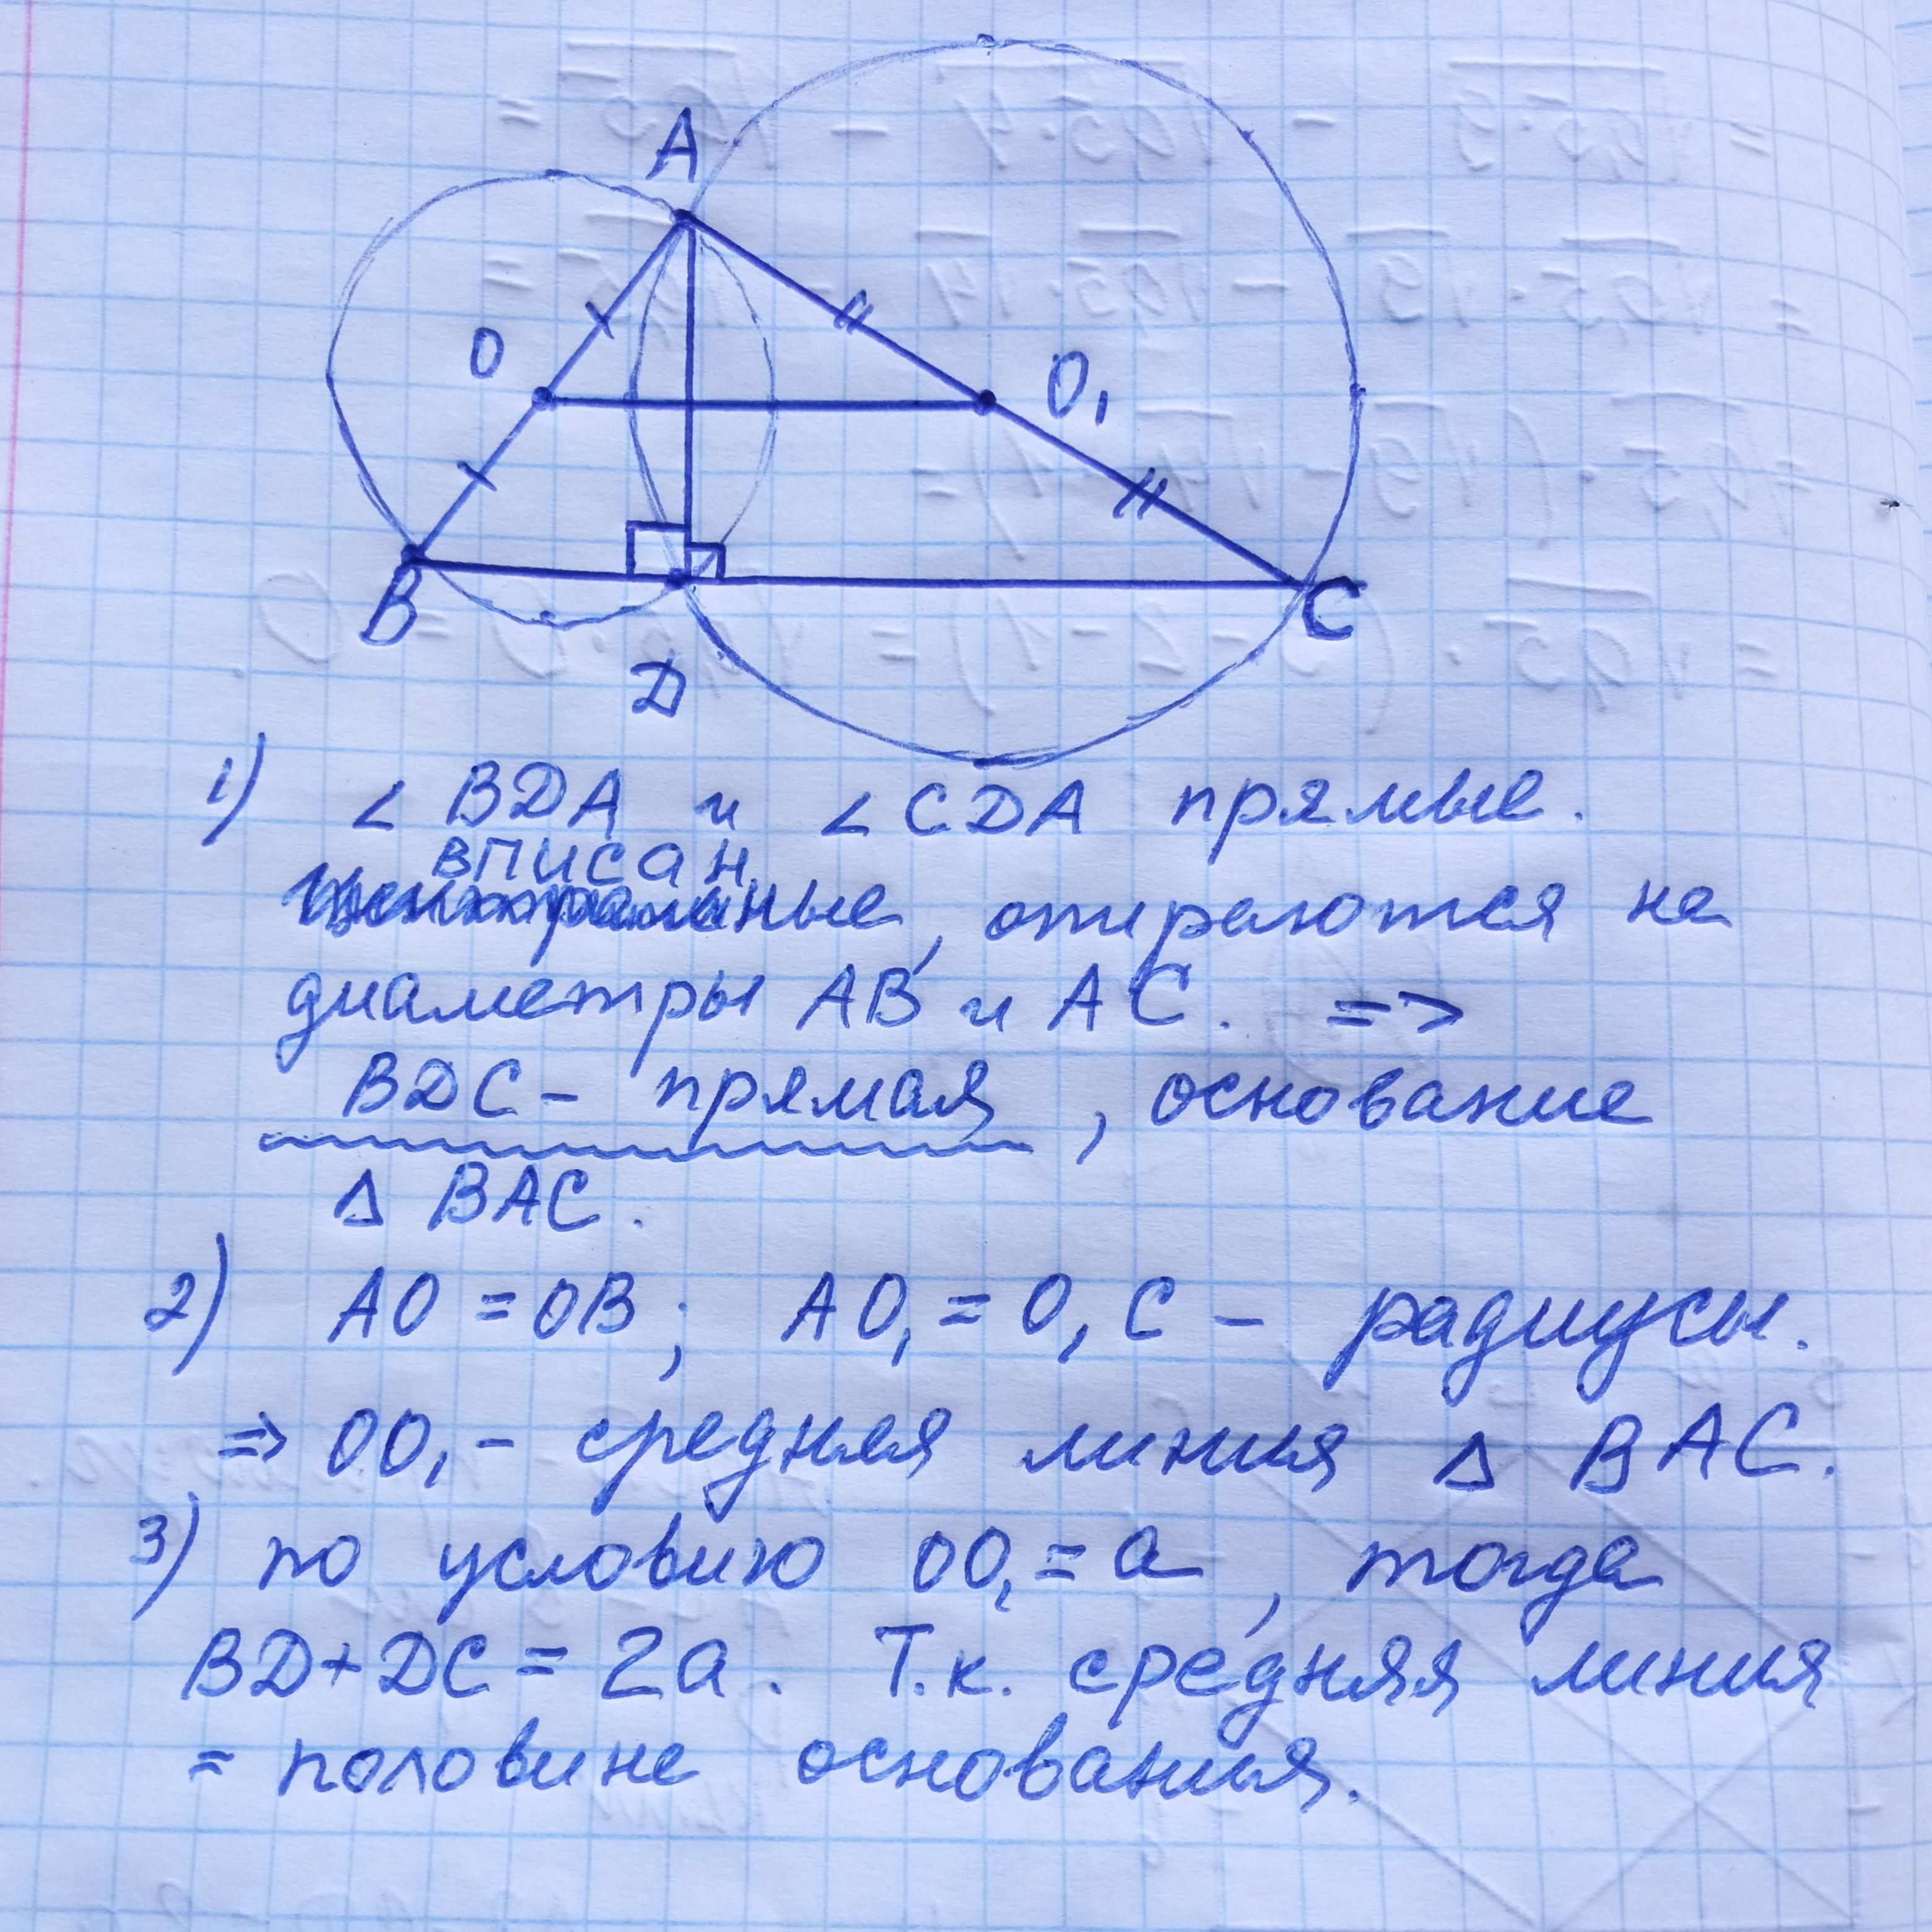 A
O
O₁
B
C
D
1) ∠ BDA и ∠ CDA прямые.
вписан
ные, опираются на
диаметры AB и AC. =>
BDC - прямая, основание
Δ BAC.
2) AO = OB; AO₁ = O₁C - радиусы.
=> OO₁ - средняя линия Δ BAC.
3) по условию OO₁ = a, тогда
BD+DC = 2a. Т.к. средняя линия
= половине основания.